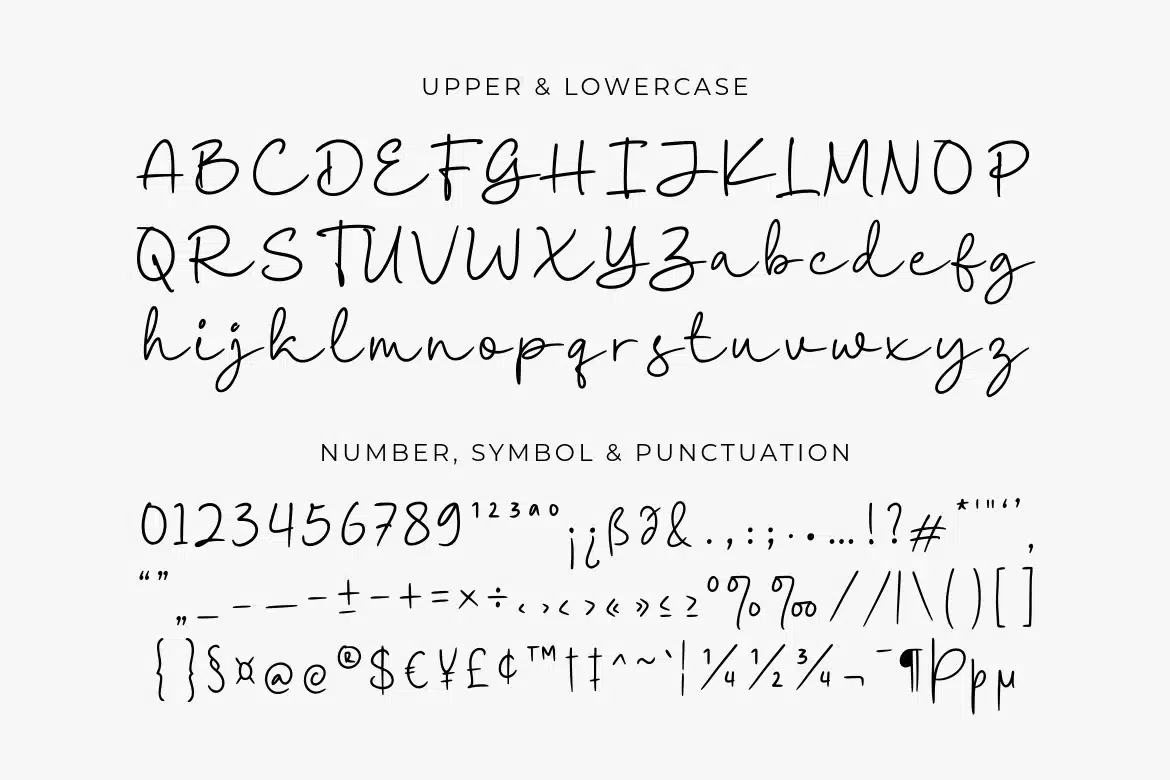 UPPER & LOWERCASE
ABCDEFGHIJKLMNOP
QRSTUVWXYZabcdefg
hijklmnopqrstuvwxyz
NUMBER, SYMBOL & PUNCTUATION
0123456789¹²³ªº¡¿ß∂&.,:;·•…!?#*'"‘’‚
“”„_-—–±−+=×÷‹›<>«»≤≥°%‰⁄/|\()[]
{}§¤@©®$€¥£¢™†‡^~`¦¼½¾¬¯¶Þþµ